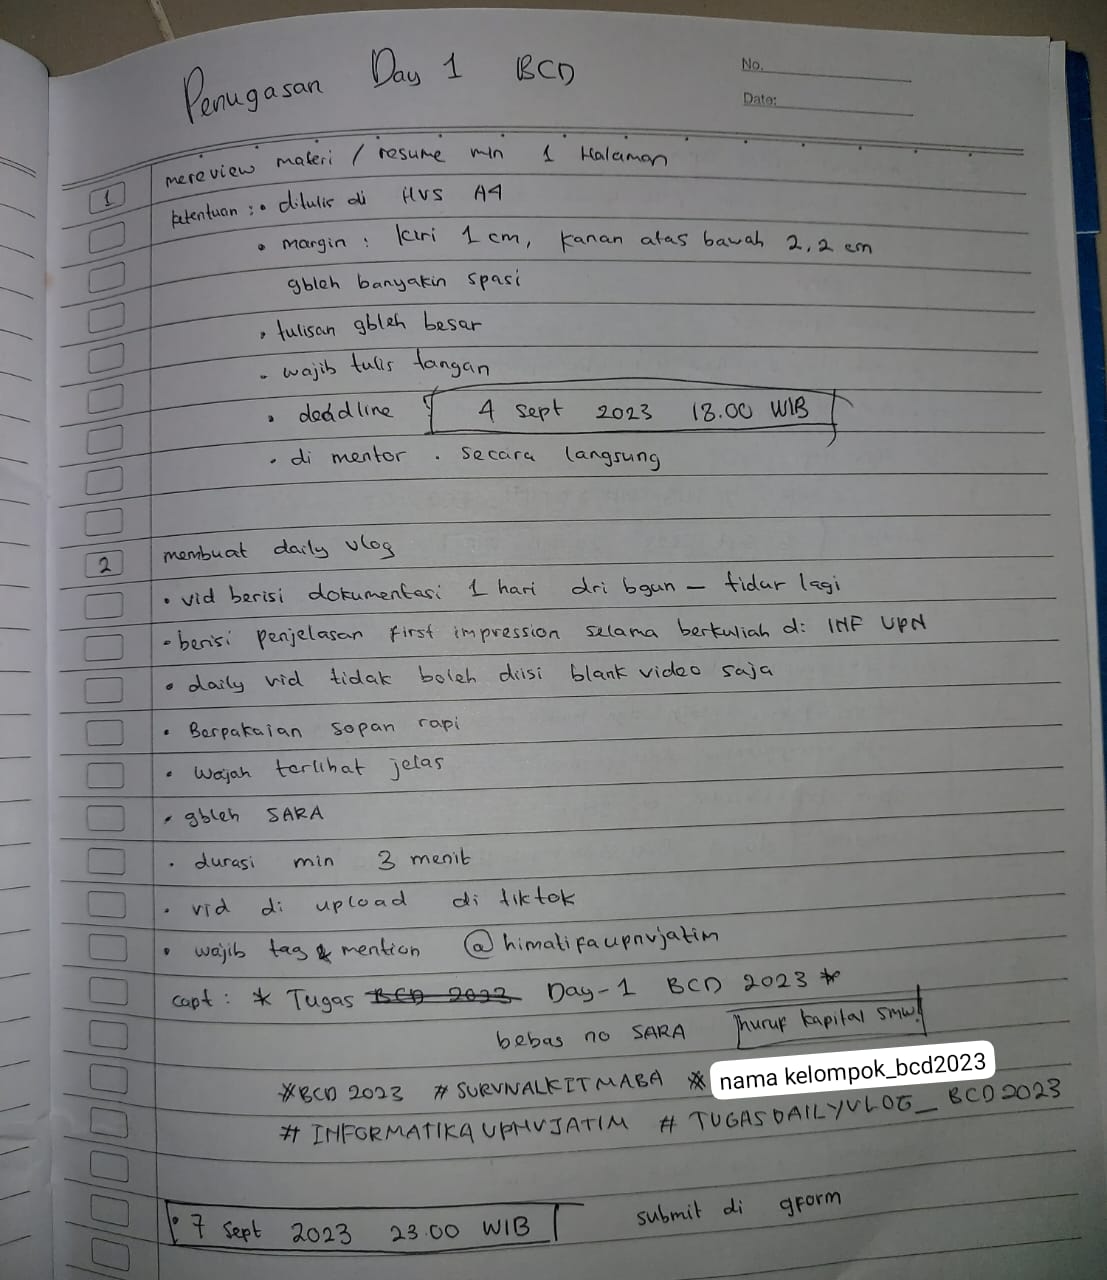 Penugasan Day 1 BCD
No.
Date:
1 mereview materi / resume min 1 Halaman
ketentuan : • ditulis di HVS A4
• margin : kiri 1 cm, kanan atas bawah 2,2 cm
gbleh banyakin spasi
• tulisan gbleh besar
- wajib tulis tangan
• deadline 4 Sept 2023 18.00 WIB
• di mentor . secara langsung
2 membuat daily vlog
• vid berisi dokumentasi 1 hari dri bgun - tidur lagi
• berisi penjelasan first impression selama berkuliah di INF UPN
• daily vid tidak boleh diisi blank video saja
• Berpakaian sopan rapi
• Wajah terlihat jelas
• gbleh SARA
• durasi min 3 menit
• vid di upload di tiktok
• wajib tag & mention @himatifaupnvjatim
capt : * Tugas BCD 2023 Day-1 BCD 2023 *
bebas no SARA huruf kapital smw!
#BCD 2023 # SURVIVALKITMABA # nama kelompok_bcd2023
# INFORMATIKAUPNVJATIM # TUGASDAILYVLOG_BCD2023
: 7 Sept 2023 23.00 WIB submit di gform